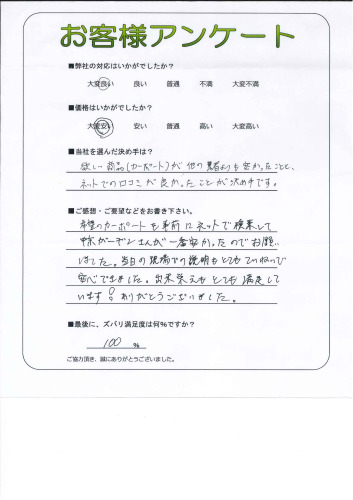 お客様アンケート
■弊社の対応はいかがでしたか？
大変良い 良い 普通 不満 大変不満
■価格はいかがでしたか？
大変安い 安い 普通 高い 大変高い
■当社を選んだ決め手は？
欲しい商品(カーポート)が他の業者よりも安かったことと、
ネットでの口コミが良かったことが決め手です。
■ご感想・ご要望などをお書き下さい。
希望のカーポートを事前にネットで検索して
ガーデンさんが一番安かったのでお願い
しました。当日の現場での説明もとてもていねいで
安心できました。出来栄えもとても満足して
います！ありがとうございました。
■最後に、ズバリ満足度は何％ですか？
100 %
ご協力頂き、誠にありがとうございました。